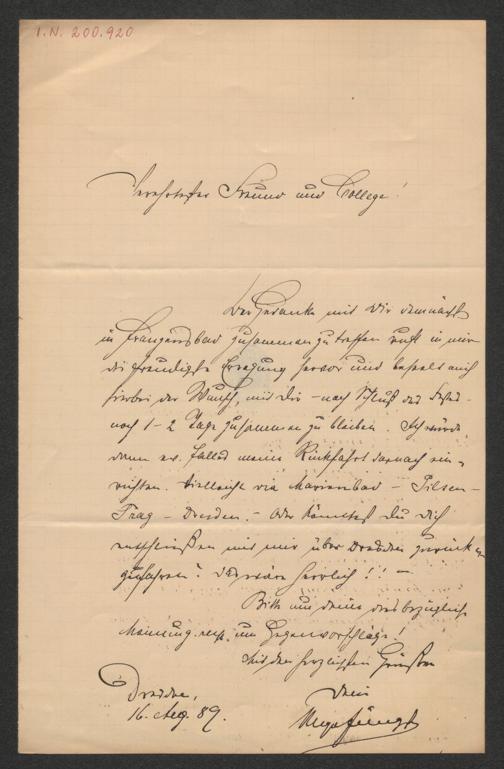 I.N. 200.920
Verehrtester Freund und College!
Der Gedanke mit Dir demnächst
in Franzensbad zusammen zu treffen ruft in mir
die freudigste Erregung hervor und beseelt mich
hierbei der Wunsch, mit Dir – nach Schluß des Festes –
noch 1–2 Tage zusammen zu bleiben. Ich würde
dann ev. Falles meine Rückfahrt darnach ein-
richten. Vielleicht via Marienbad – Pilsen –
Prag – Dresden. – Oder könntest Du Dich
entschließen mit mir über Dresden zurück zu
zufahren? Das wäre herrlich!! –
Bitte um Deine diesbezügliche
Meinung resp. um Gegenvorschläge!
Mit den herzlichsten Grüßen
Dein
Hugo Jüngst
Dresden,
16. Aug. 89.